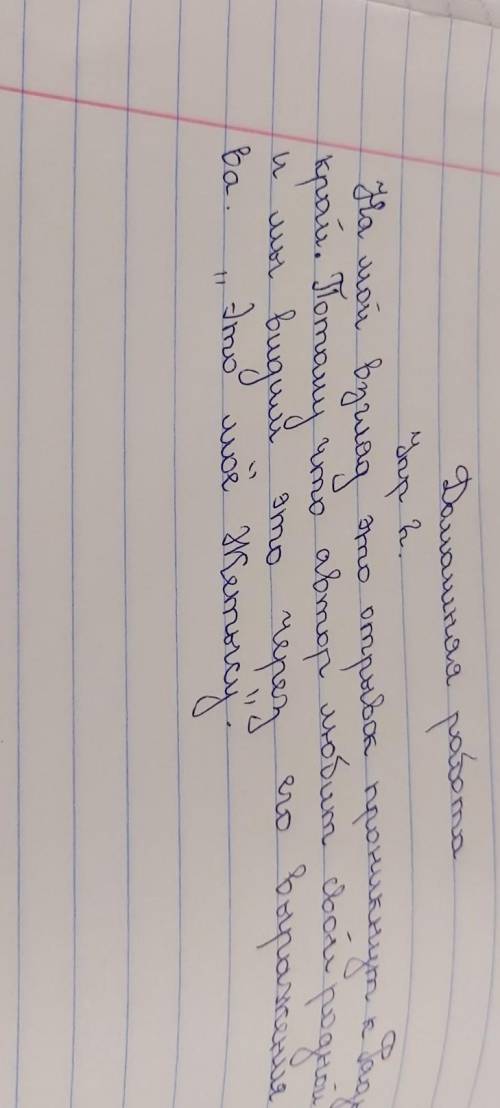 Домашняя работа
Упр 2.
На мой взгляд это отрывок проникнут к
край. Потому что автор любит свой родной
и мы видим это через его выражения
ва. „Это моё Жетысу”.